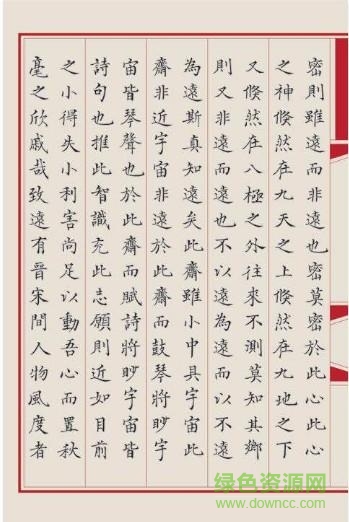 密則雖遠而非遠也密莫密於此心此心
之神倏然在九天之上倏然在九地之下
又倏然在八極之外往來不測莫知其鄉
則又非遠而遠也不以遠為遠而以不遠
為遠斯真知遠矣此齋雖小中具宇宙此
齋非近宇宙非遠於此齋而鼓琴將眇宇
宙皆琴聲也於此齋而賦詩將眇宇宙皆
詩句也推此智識充此志願則近如目前
之小得失小利害尚足以動吾心而置秋
毫之欣戚哉致遠有晉宋間人物風度者
绿色资源网
www.downcc.com